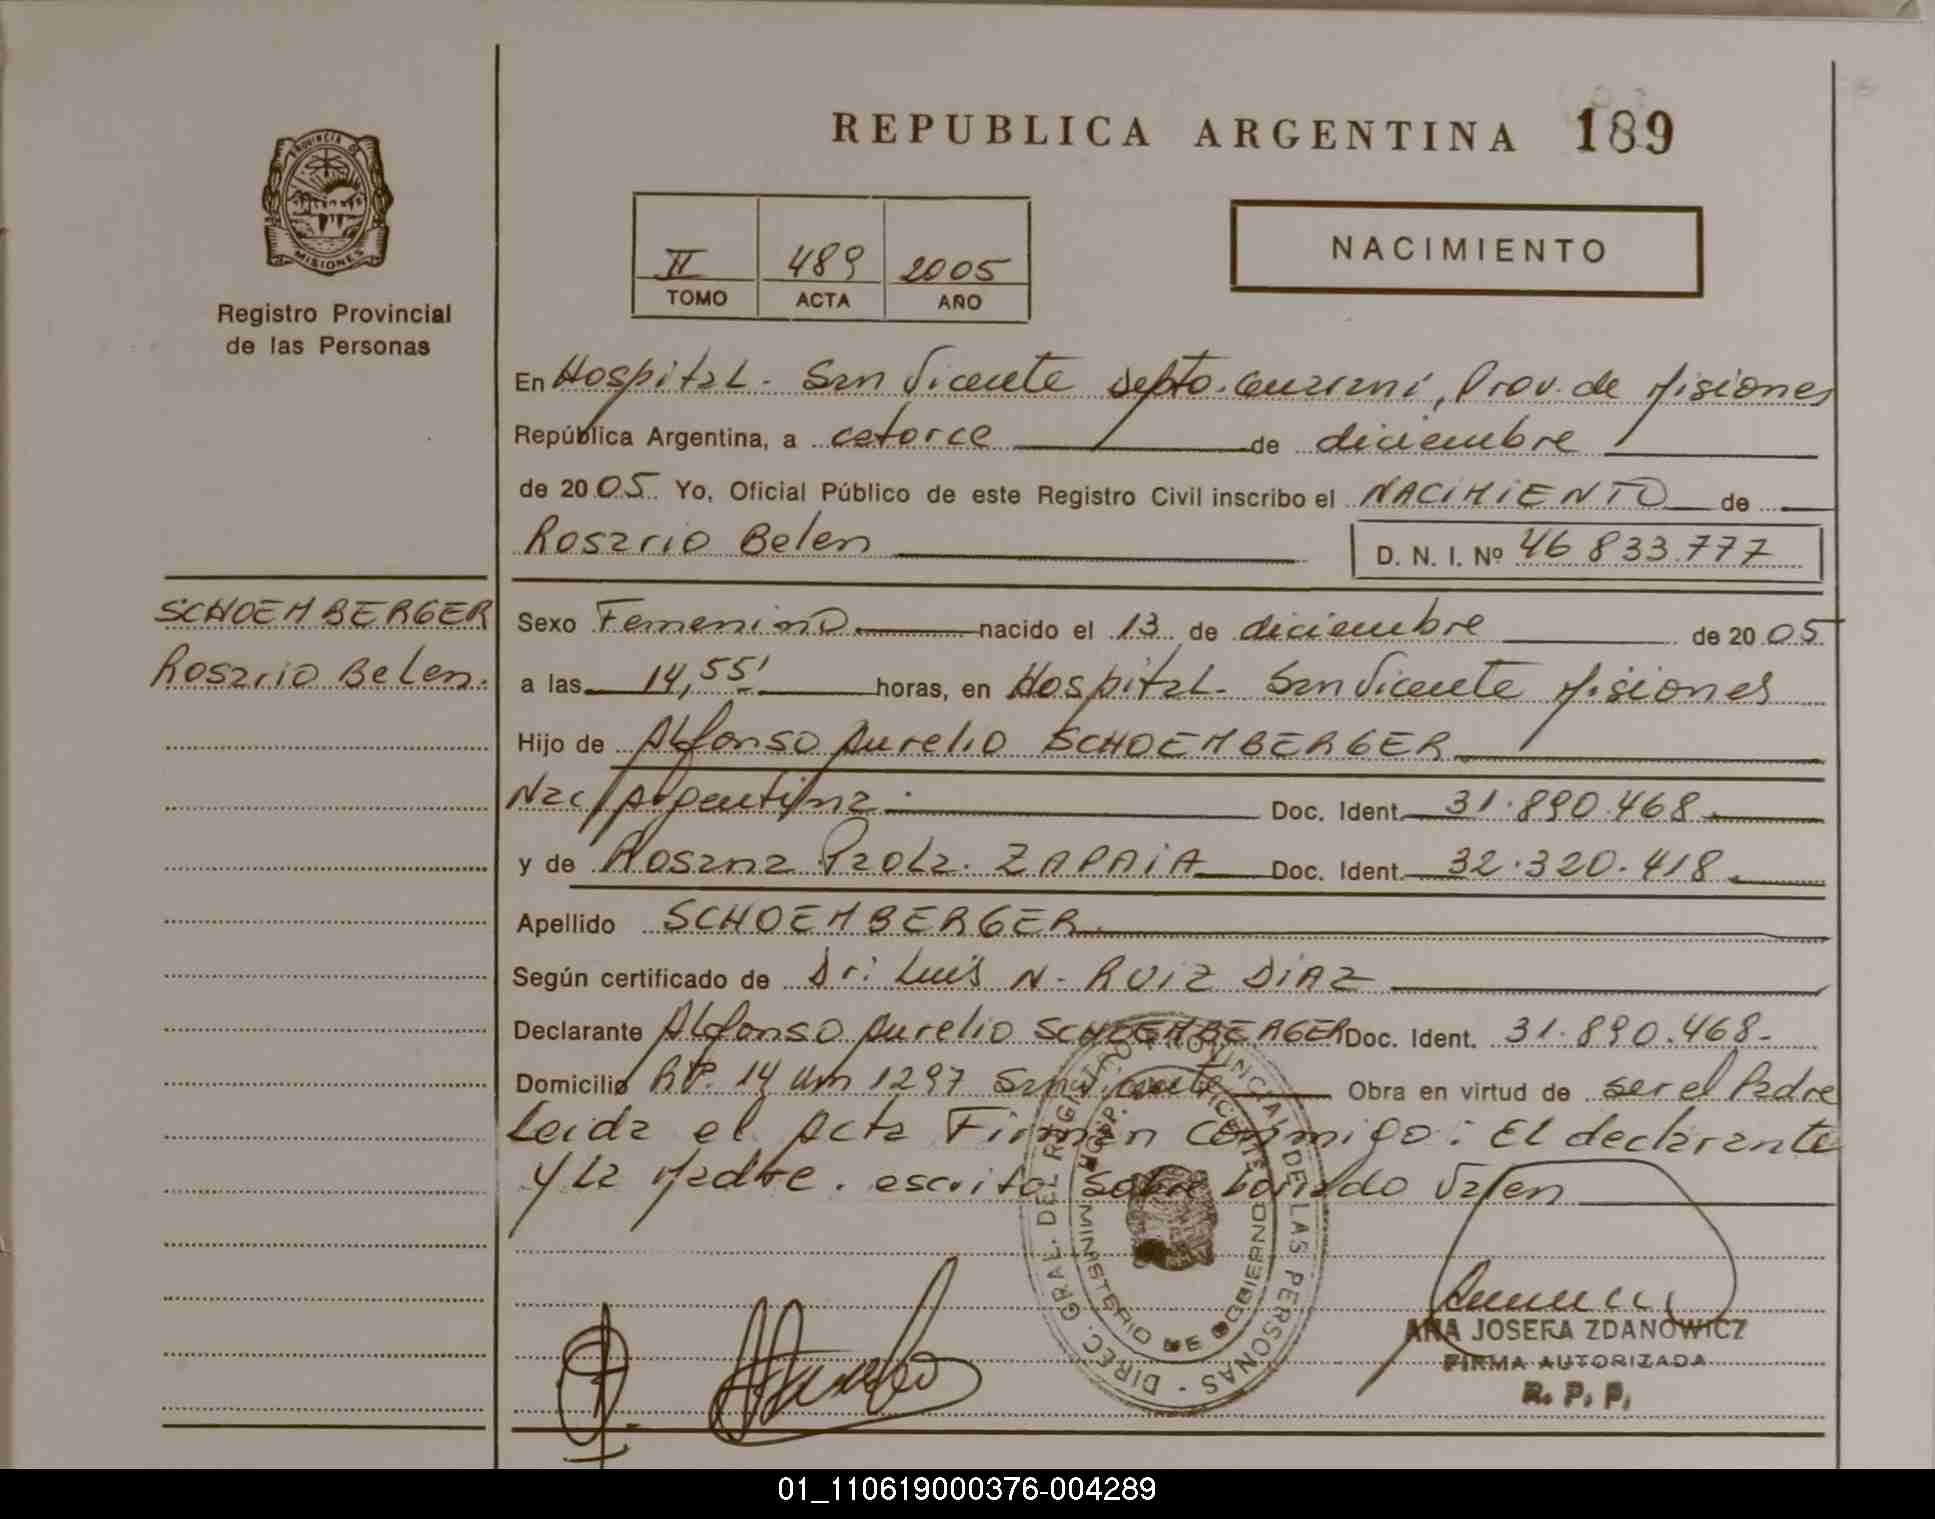 REPUBLICA ARGENTINA 189
PROVINCIA DE
MISIONES
Registro Provincial
de las Personas
II 489 2005
TOMO ACTA AÑO
NACIMIENTO
En Hospital - San Vicente Depto. Guarani, Prov. de Misiones
República Argentina, a catorce de diciembre
de 2005 Yo, Oficial Público de este Registro Civil inscribo el NACIMIENTO de
Rosario Belen D. N. I. Nº 46 833.777
SCHOEMBERGER
Rosario Belen.
Sexo Femenino nacido el 13 de diciembre de 2005
a las 14,55' horas, en Hospital - San Vicente Misiones
Hijo de Alfonso Aurelio SCHOEMBERGER
Nac/ Argentina Doc. Ident. 31.890.468
y de Rosana Paola ZAPAIA Doc. Ident. 32.320.418
Apellido SCHOEMBERGER
Según certificado de Dr: Luis N. RUIZ DIAZ
Declarante Alfonso Aurelio SCHOEMBERGER Doc. Ident. 31.890.468-
Domicilio R.P. 14 Km 1297 San Vicente Obra en virtud de ser el Padre
Leida el Acta Firman conmigo: El declarante
y la Madre. escrito sobre borrado Valen
DIREC. GRAL. DEL REGISTRO PROVINCIAL DE LAS PERSONAS -
HOSP. SAN VICENTE
MINISTERIO DE GOBIERNO
ANA JOSEFA ZDANOWICZ
FIRMA AUTORIZADA
R. P. P.
01_110619000376-004289